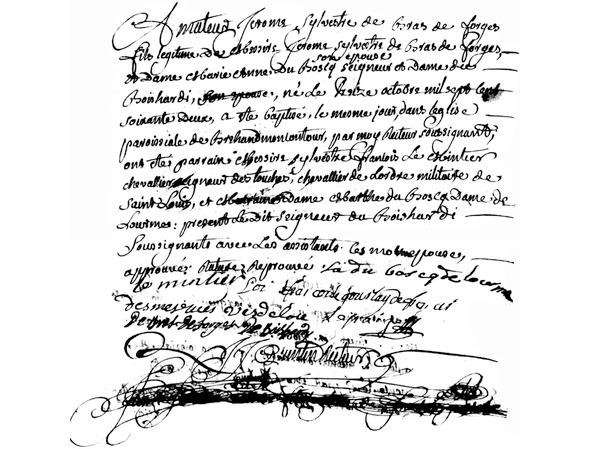 Amateur Jerome Sylvestre de Bras de forges
fils legitime de Messire Jerome Sylvestre de Bras de forges,
son epouse
et Dame Marie Anne Du Boscq seigneur et Dame du
Boishardi, son epouse, né le treize octobre mil sept cent
soixante deux, a eté baptisé, le meme jour dans leglise
paroissiale de Brehandmoncontour, par moy Recteur soussignant,
ont etés parrain Messire Sylvestre francois Le Mintier
chevallier seigneur des touches, chevallier de Lordre militaire de
Saint Louis, et Marraine Dame Marthe du Boscq Dame de
Lourmes: present Le dit seigneur du Boishardi
Soussignants avec Les assistants. les mots epouse,
approuvéz Rature Reprouvée. La du boscq de Lourme
Le mintier
desmesnues Visdelou
Recteur